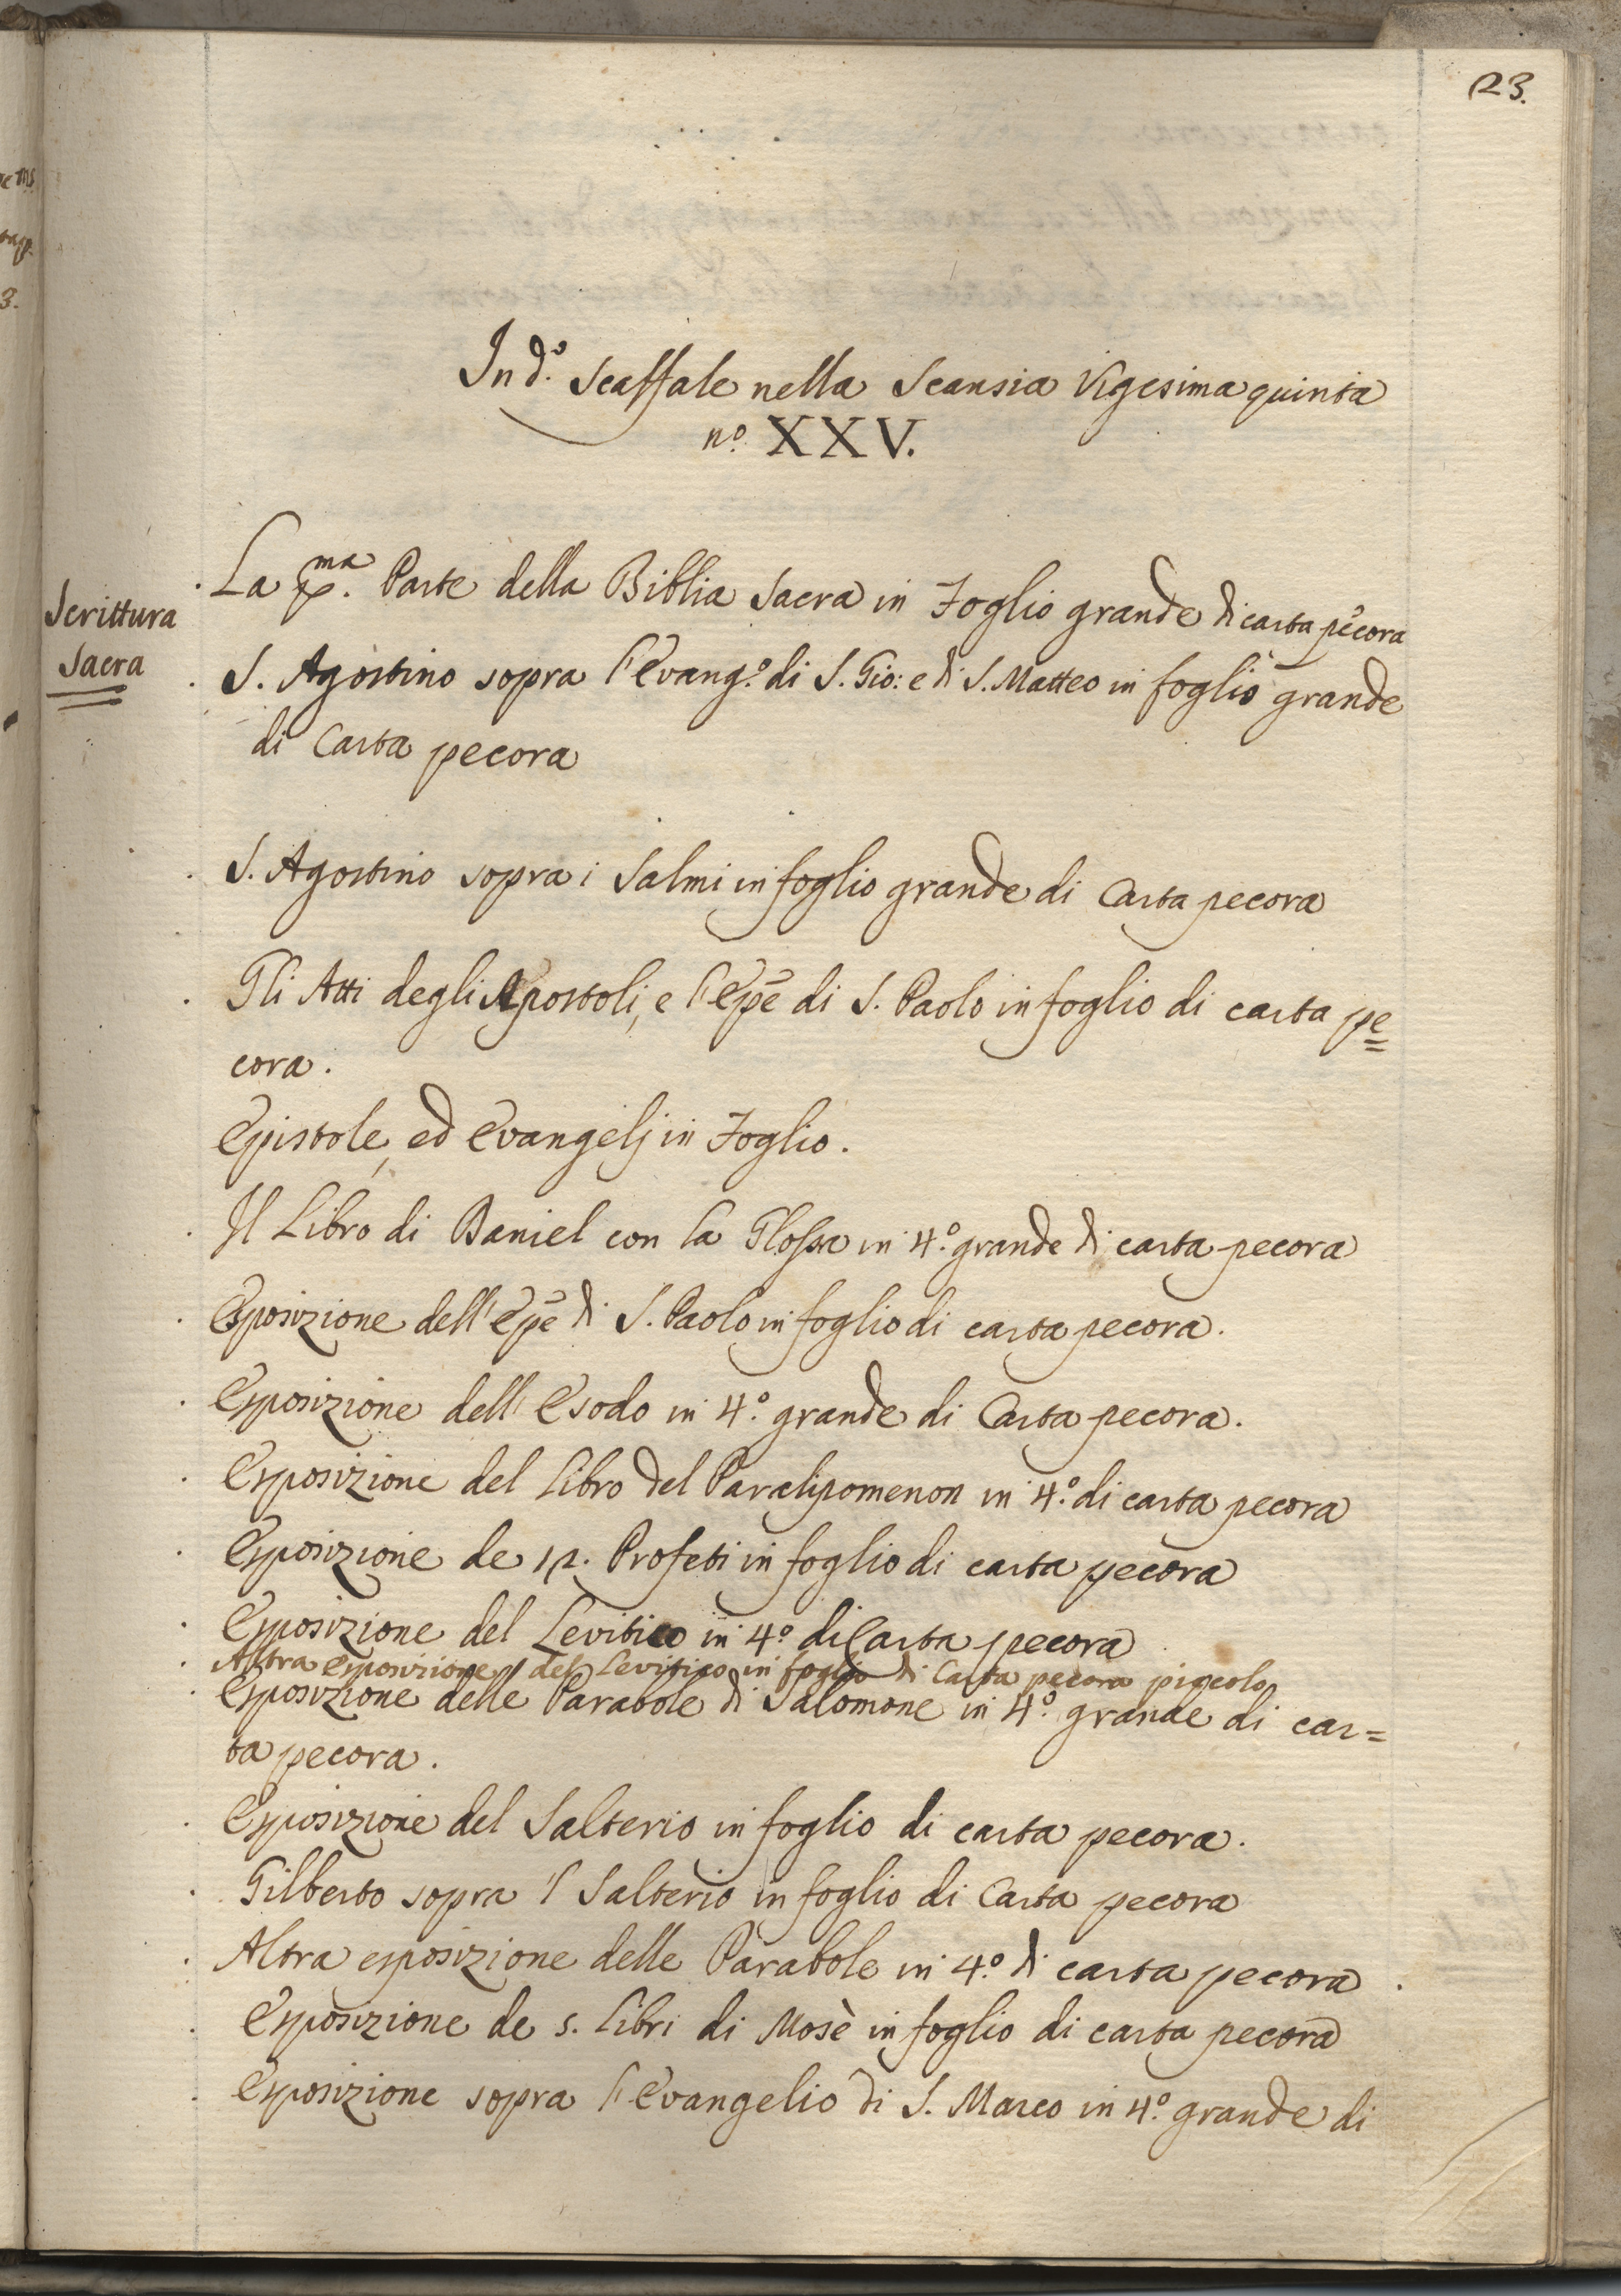 23.
In d.º Scaffale nella Scansia Vigesima quinta
nº. XXV.
Scrittura
Sacra
La p.ma Parte della Biblia Sacra in Foglio grande di carta pecora
S. Agostino sopra l'Evang.º di S. Gio: e di S. Matteo in foglio grande
di Carta pecora
S. Agostino sopra i Salmi in foglio grande di Carta pecora
Gli Atti degli Apostoli, e l'Epē di S. Paolo in foglio di carta pe=
cora.
Epistole, ed Evangelj in Foglio.
Il Libro di Daniel con la Glossa in 4.º grande di carta pecora
Esposizione dell'Epē di S. Paolo in foglio di carta pecora.
Esposizione dell'Esodo in 4.º grande di Carta pecora.
Esposizione del Libro del Paralipomenon in 4.º di carta pecora
Esposizione de 12. Profeti in foglio di carta pecora
Esposizione del Levitico in 4.º di Carta pecora
Altra esposizione del Levitico in foglio di Carta pecora piccolo
Esposizione delle Parabole di Salomone in 4.º grande di car=
ta pecora.
Esposizione del Salterio in foglio di carta pecora.
Gilberto sopra 'l Salterio in foglio di Carta pecora
Altra esposizione delle Parabole in 4.º di carta pecora.
Esposizione de 5. Libri di Mosè in foglio di carta pecora
Esposizione sopra l'Evangelio di S. Marco in 4.º grande di